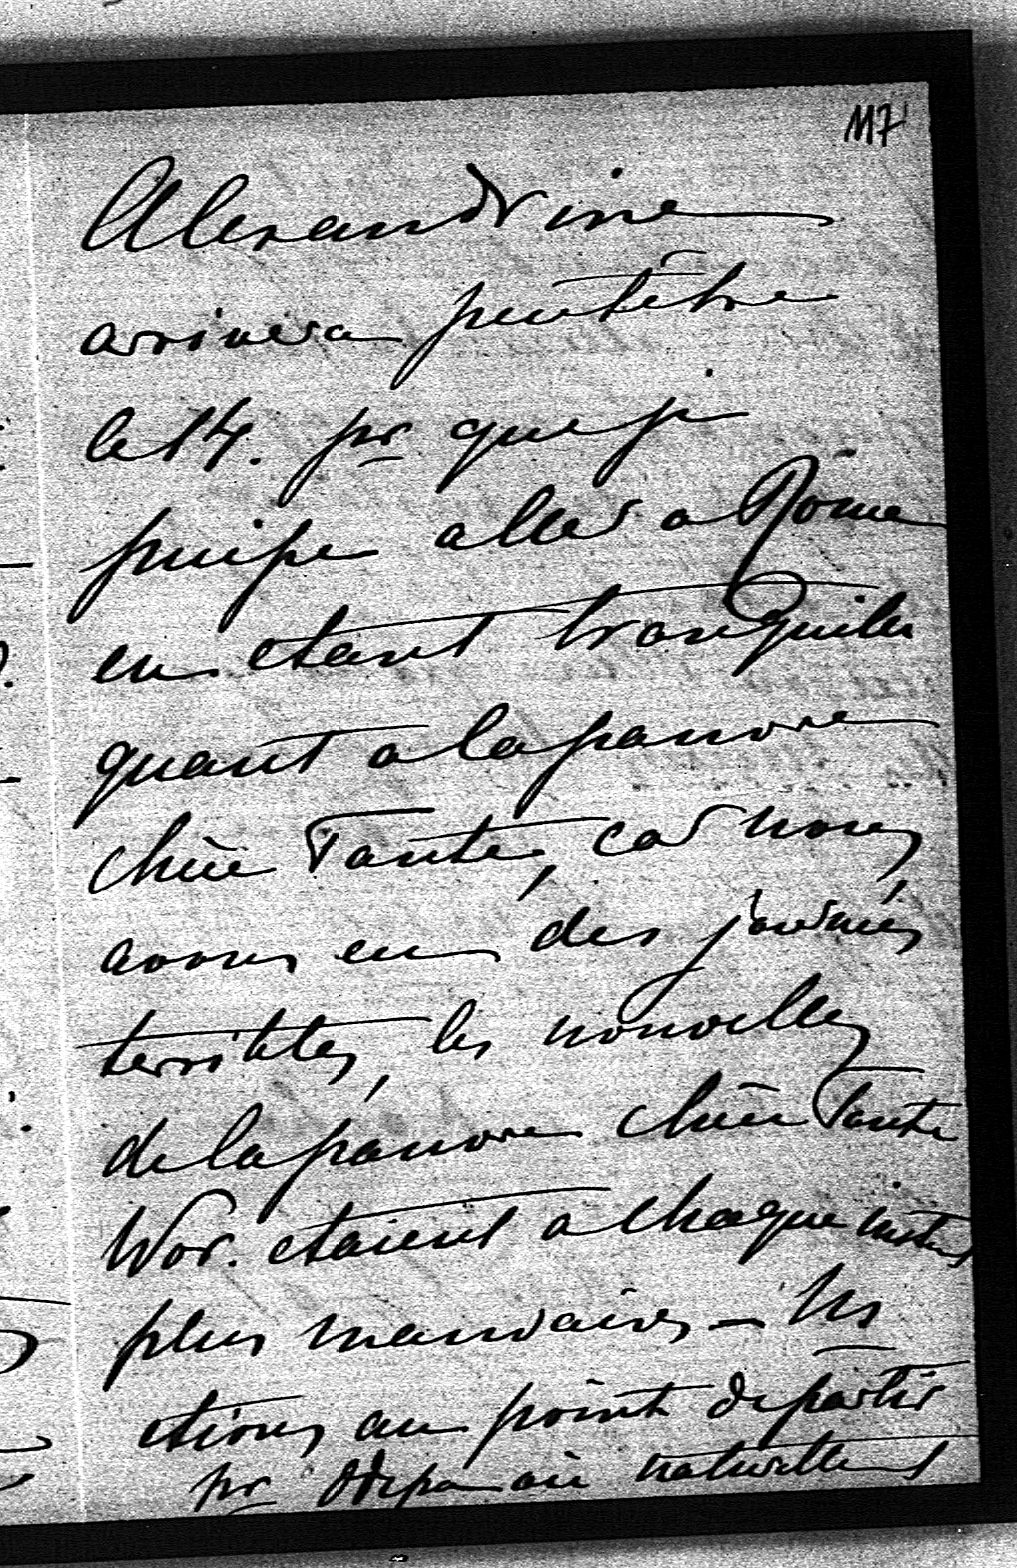 117
Alexandrine
arrivera peutêtre
le 14. pr que je
puisse aller a Rome
en etant tranquille
quant a la pauvre
chère Tante, car nous
avons eu des journées
terribles, les nouvelles
de la pauvre chère Tante
Wor. etaient a chaque instant
plus mauvaises – Ns
etions au point de partir
pr Odessa où naturellement